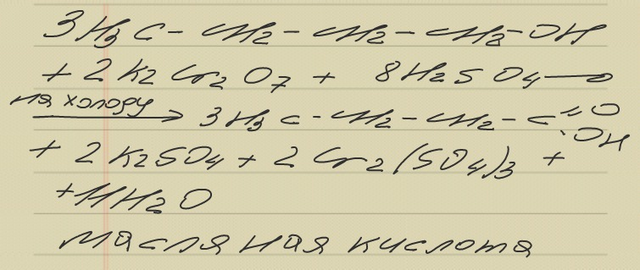 3H3C-CH2-CH2-CH2-OH
+ 2K2Cr2O7 + 8H2SO4→
на холоду → 3H3C-CH2-CH2-C=O-OH
+ 2K2SO4 + 2Cr2(SO4)3 +
+11H2O
масляная кислота